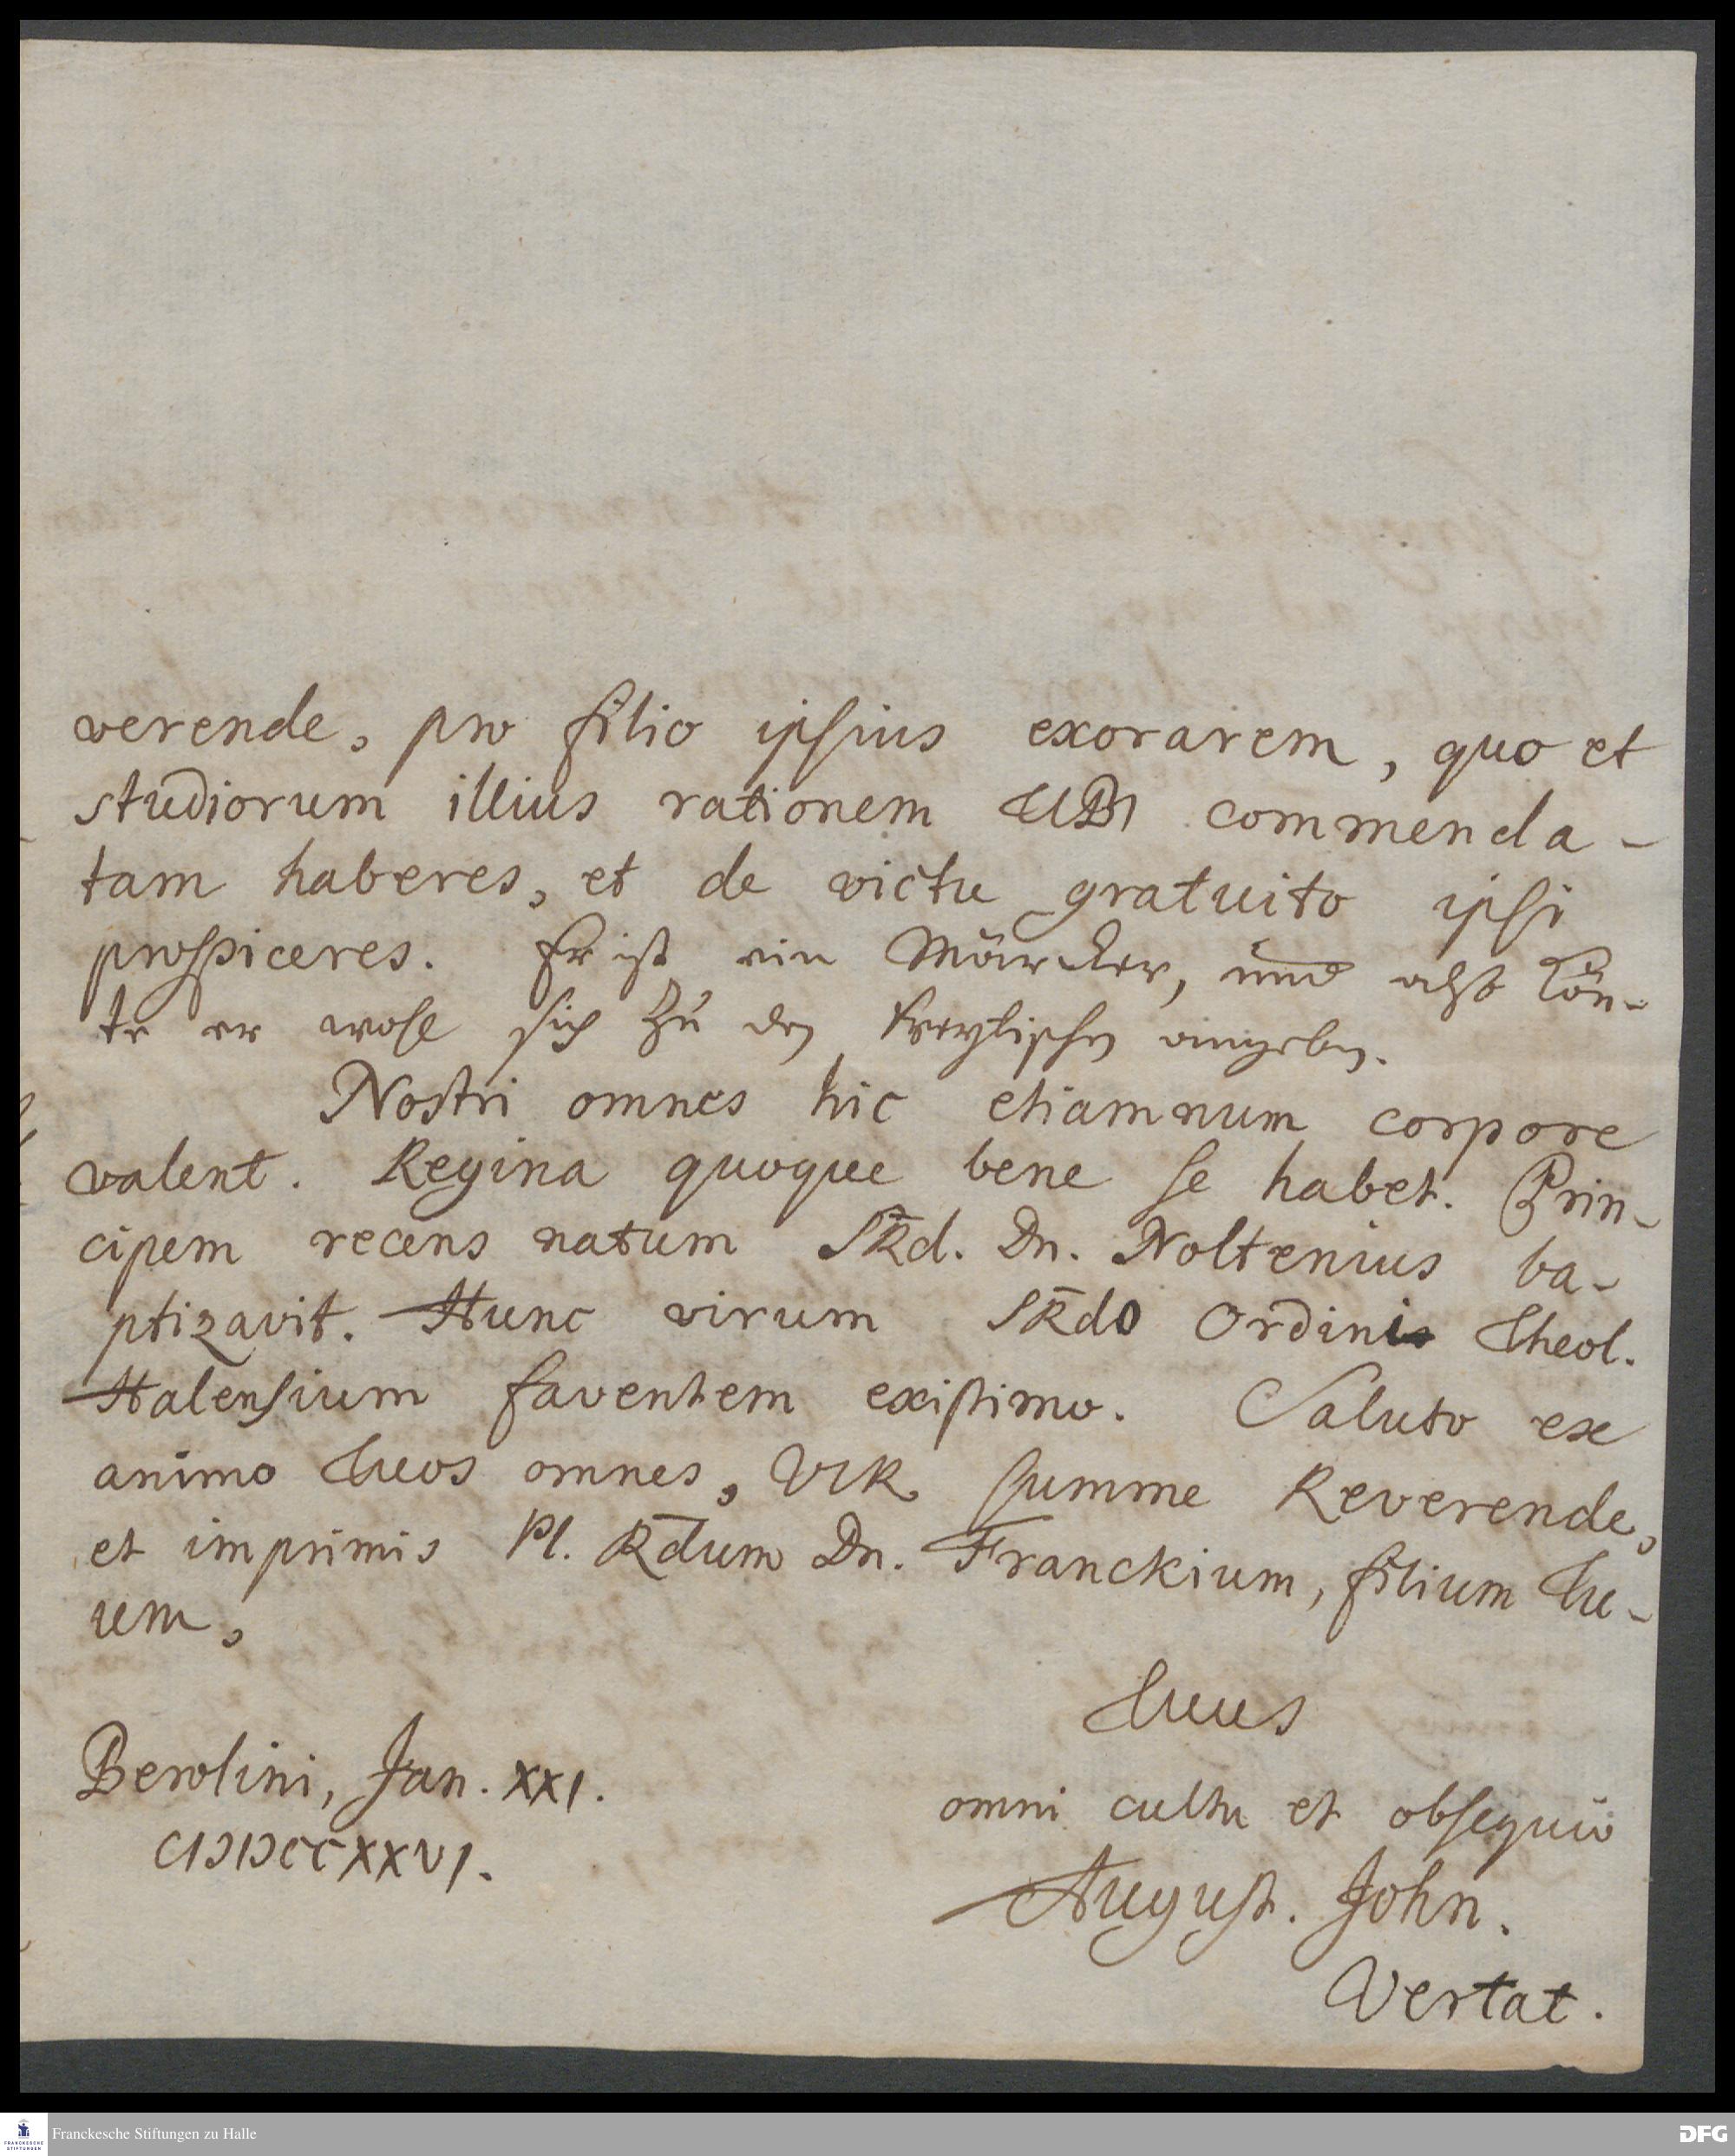 verende, pro filio ipsius exorarem, quo et
studiorum illius rationem TIBI commenda-
tam haberes, et de victu gratuito ipsi
prospiceres. Er ist ein Märcker, und alß kön-
te er wohl sich zu den Freytischen angeben.
Nostri omnes hic etiamnum corpore
valent. Regina quoque bene se habet. Prin-
cipem recens natum SRd. Dn. Noltenius ba-
ptizavit. Hunc virum SRdo Ordini Theol.
Halensium faventem existimo. Saluto ex
animo Tuos omnes, VIR summe Reverende,
et imprimis Pl. Rdum Dn. Franckium, filium Tu-
um,
Tuus
Berolini, Jan. XXI.
omni cultu et obsequio
CIƆIƆCCXXVI.
August. John.
Vertat.
FRANCKESCHE STIFTUNGEN
Franckesche Stiftungen zu Halle
DFG